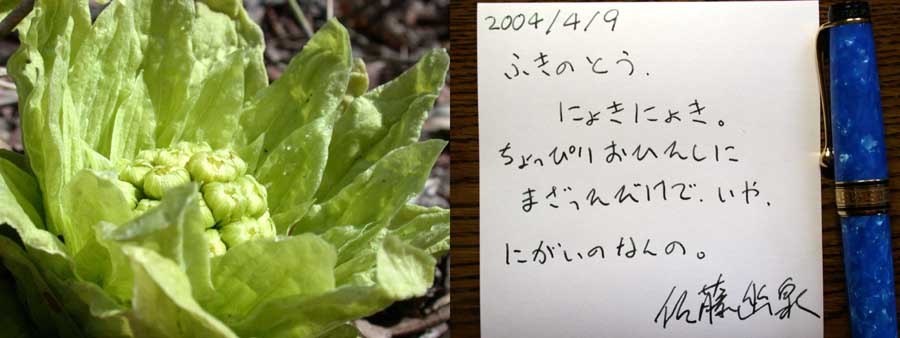 2004/4/9
ふきのとう.
にょきにょき。
ちょっぴりおひたしに
まざっただけで.いや,
にがいのなんの。
佐藤